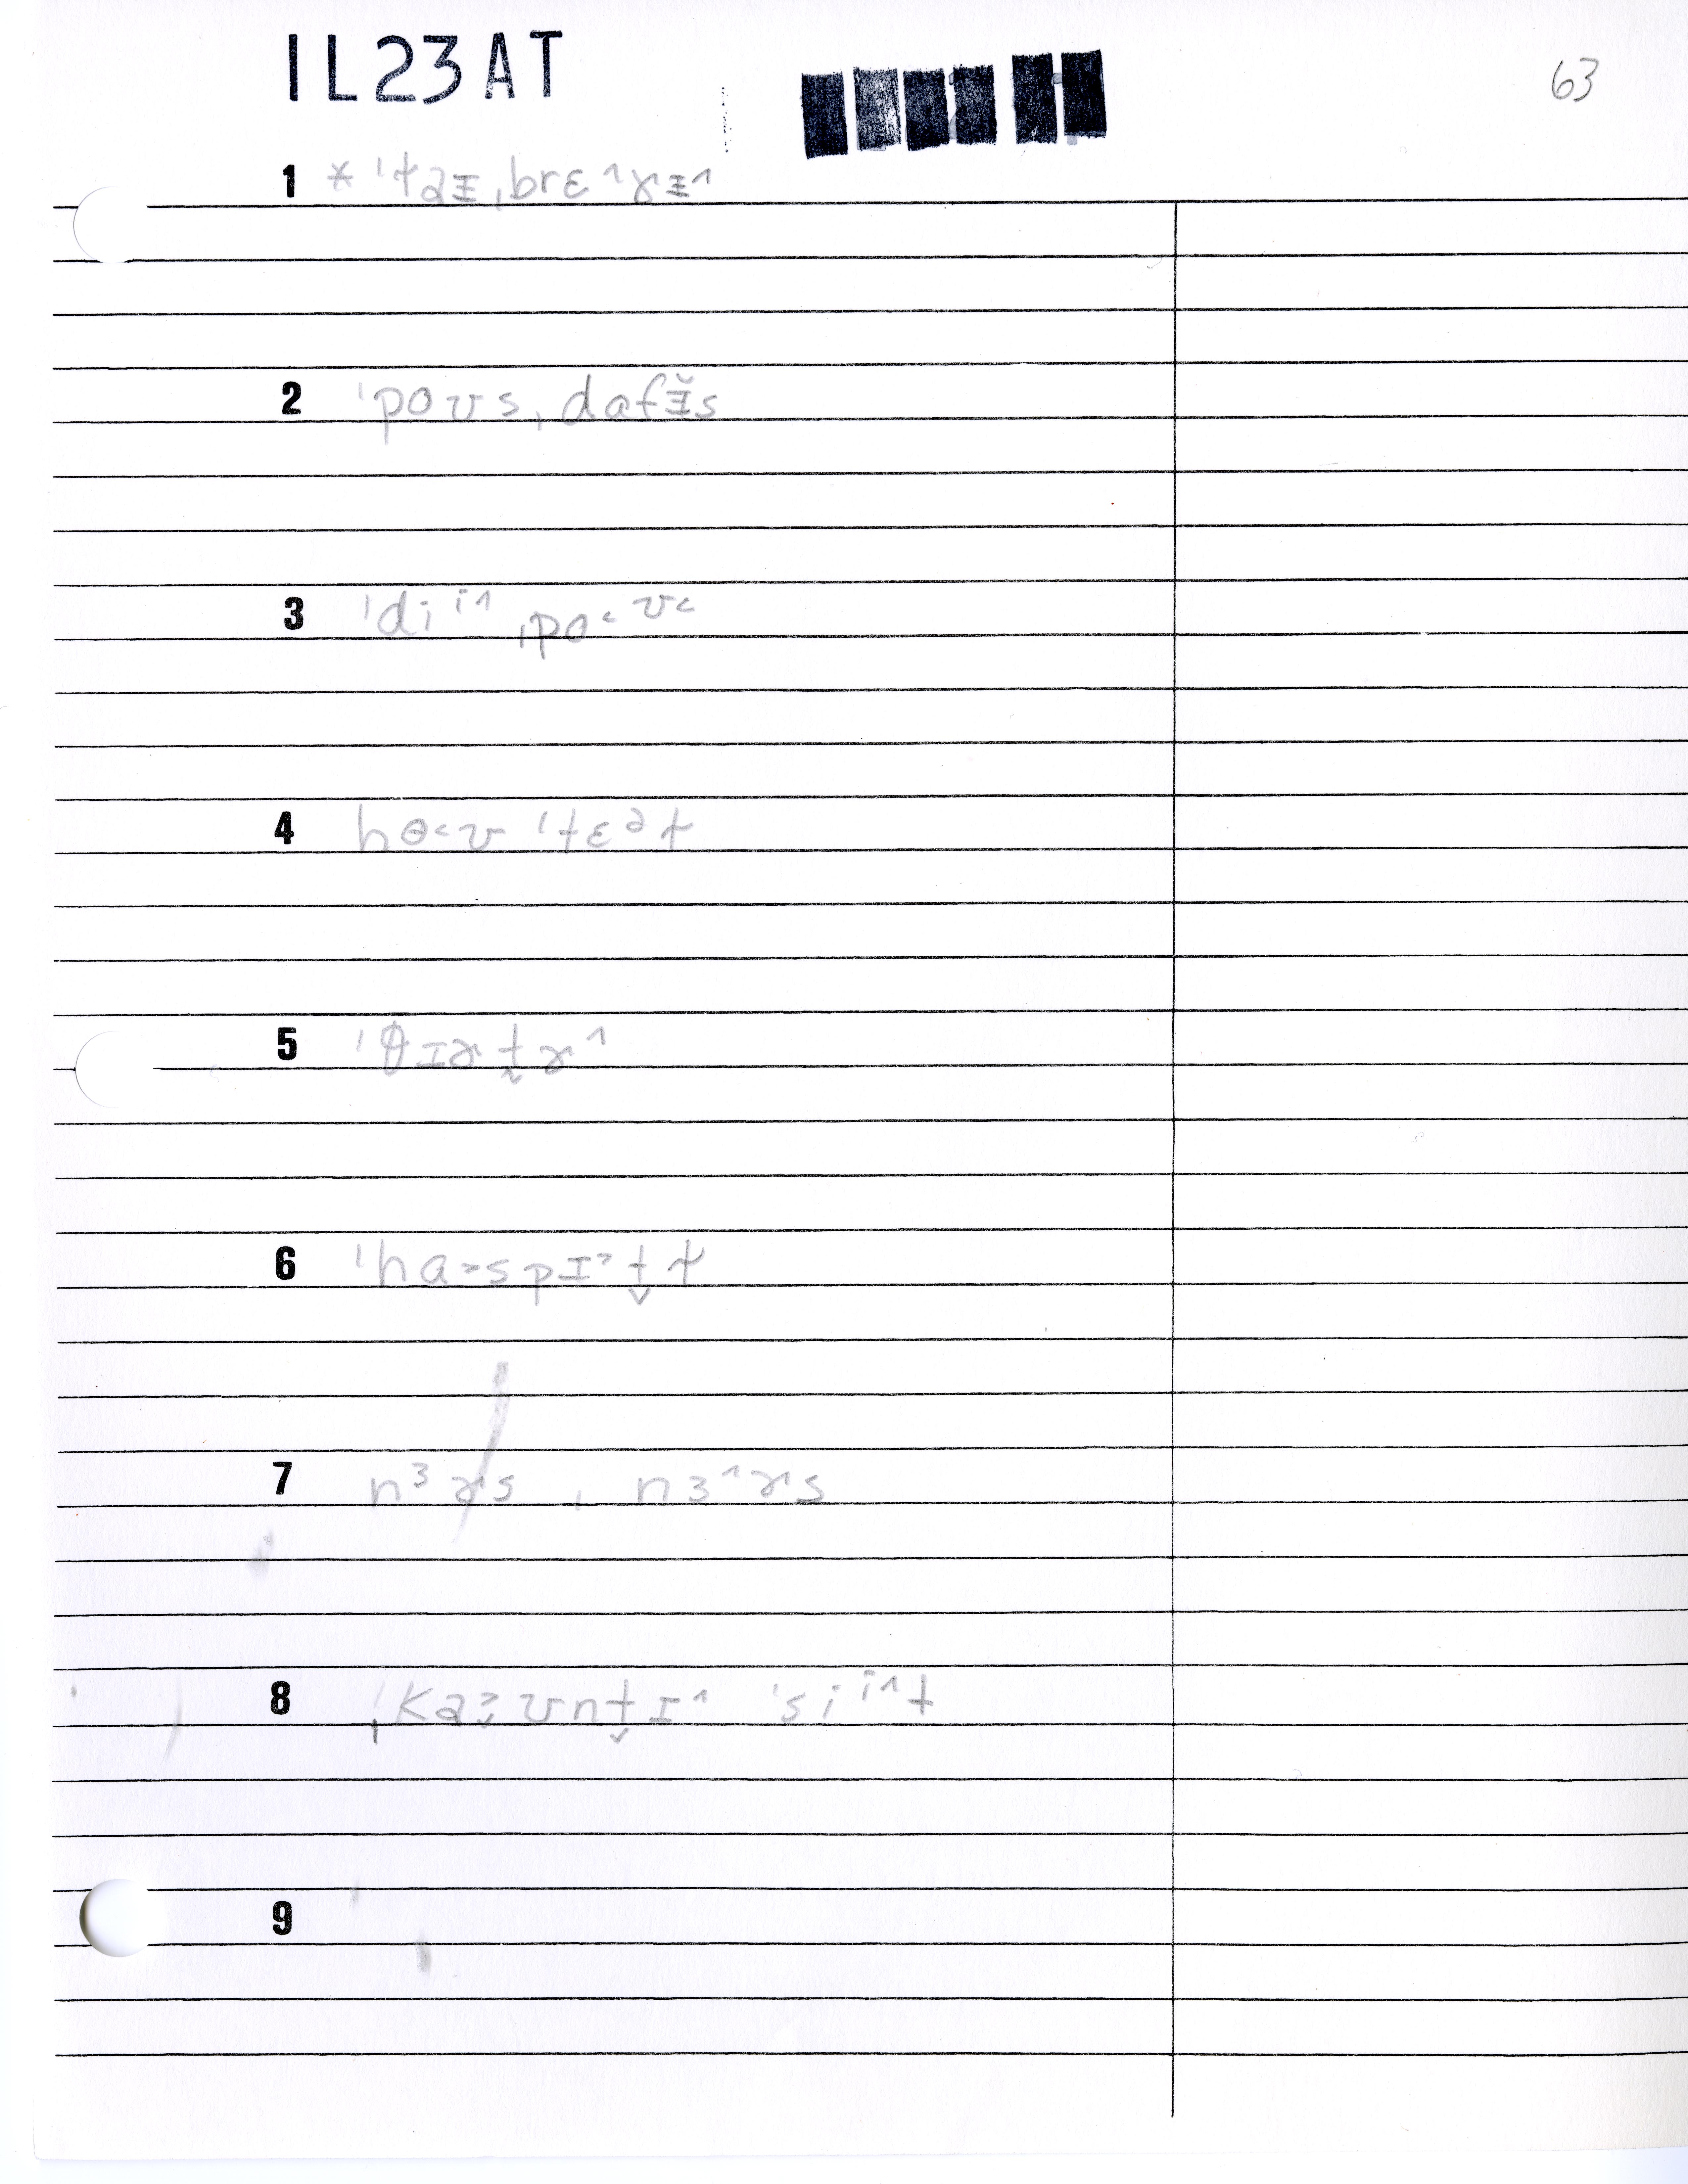 IL23AT
63
1 * ˈƭaᵻˌbrɛ˄rᵻ˄
2 ˈpoʊsˌdafᵻ̆s
3 ˈdiⁱ˄ˌpo˂ʊ˂
4 hɵ˂ʊ ˈtɛᵊƭ
5 ˈθɪɚt̬ɚ˄
6 ˈha˃spɪ˃t̬ƭ
7 nᶟɚs , nɜ˄ɚs
8 ˌkaʊnt̬ɪ˄ ˈsiⁱ˄t
9